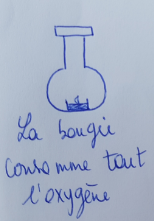 La bougie
consomme tout
l'oxygène